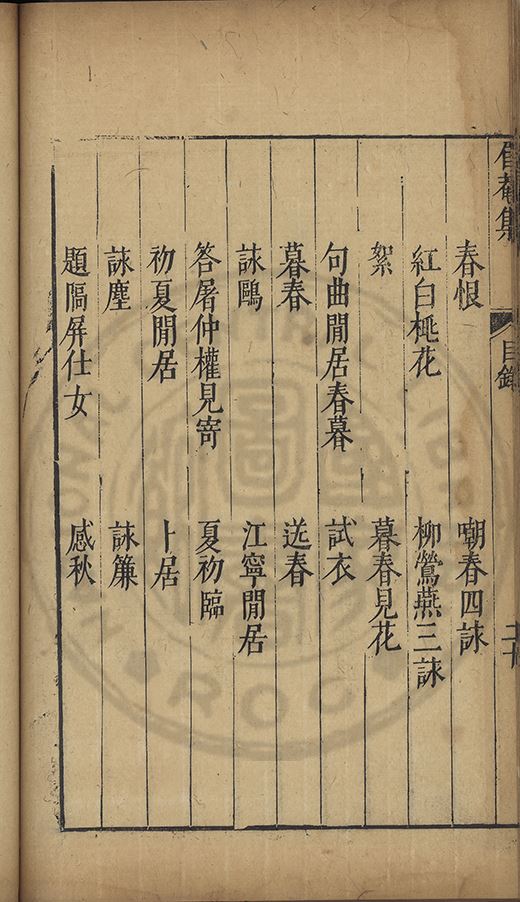 集
目錄
春恨 嘲春四詠
紅白桃花 柳鶯燕三詠
絮 暮春見花
句曲閒居春暮 試衣
暮春 送春
詠鷗 江寧閒居
答屠仲權見寄 夏初臨
初夏閒居 卜居
詠塵 詠簾
題隔屏仕女 感秋
ROC